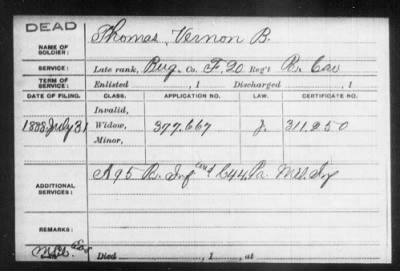 DEAD
NAME OF SOLDIER: Thomas, Vernon B.
SERVICE: Late rank, Bug. Co. F, 20 Reg't Pa. Cav
TERM OF SERVICE: Enlisted , 1 Discharged , 1
DATE OF FILING. CLASS. APPLICATION NO. LAW. CERTIFICATE NO.
Invalid,
1888 July 31 Widow, 377.667 J. 311.250
Minor,
ADDITIONAL SERVICES: A 95 Pa. Inf and C 44. Pa. Mil. Inf
REMARKS:
Died , 1 , at